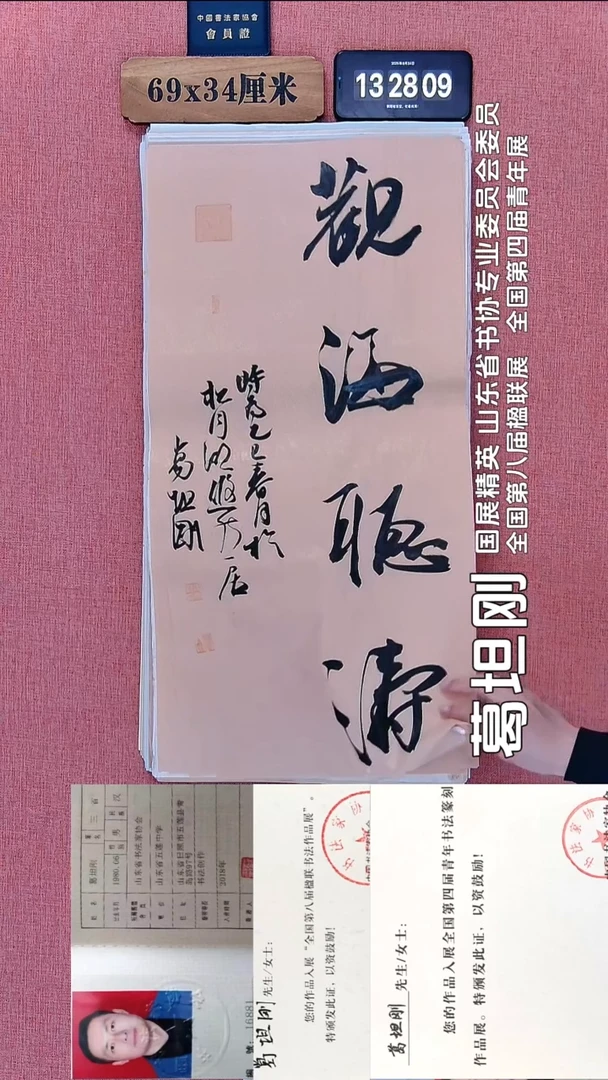 中國書法家協會
會員證
69x34厘米
13 28 09
觀海聽濤
時为乙巳春月於
松月
葛坦剛
国展精英 山东省书协专业委员会委员
全国第八届楹联展 全国第四届青年展
葛坦刚
姓名 葛坦刚
汉
1980.06
山东省书法家协会
山东省五莲中学
书法创作
2018年
编號: 16881
葛坦刚 先生/女士:
您的作品入展“全国第八届楹联书法作品展”。
特颁发此证,以资鼓励!
葛坦刚 先生/女士:
您的作品入展全国第四届青年书法篆刻
作品展。特颁发此证,以资鼓励!